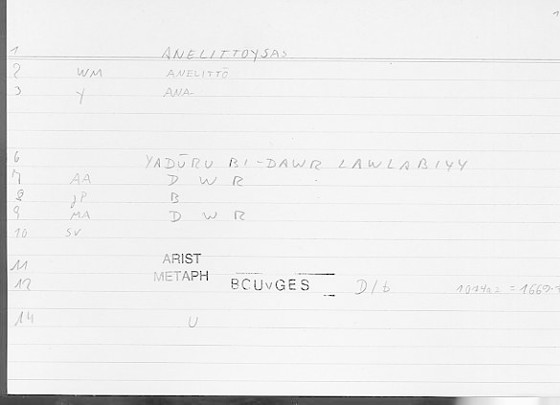 1 ANELITTOYSAS
2 WM ANELITTŌ
3 Y ANA-
6 YADŪRU BI-DAWR LAWLABIYY
7 AA D W R
8 JP B
9 MA D W R
10 SV
11 ARIST
METAPH
12 BOUvGES D/t
14 U